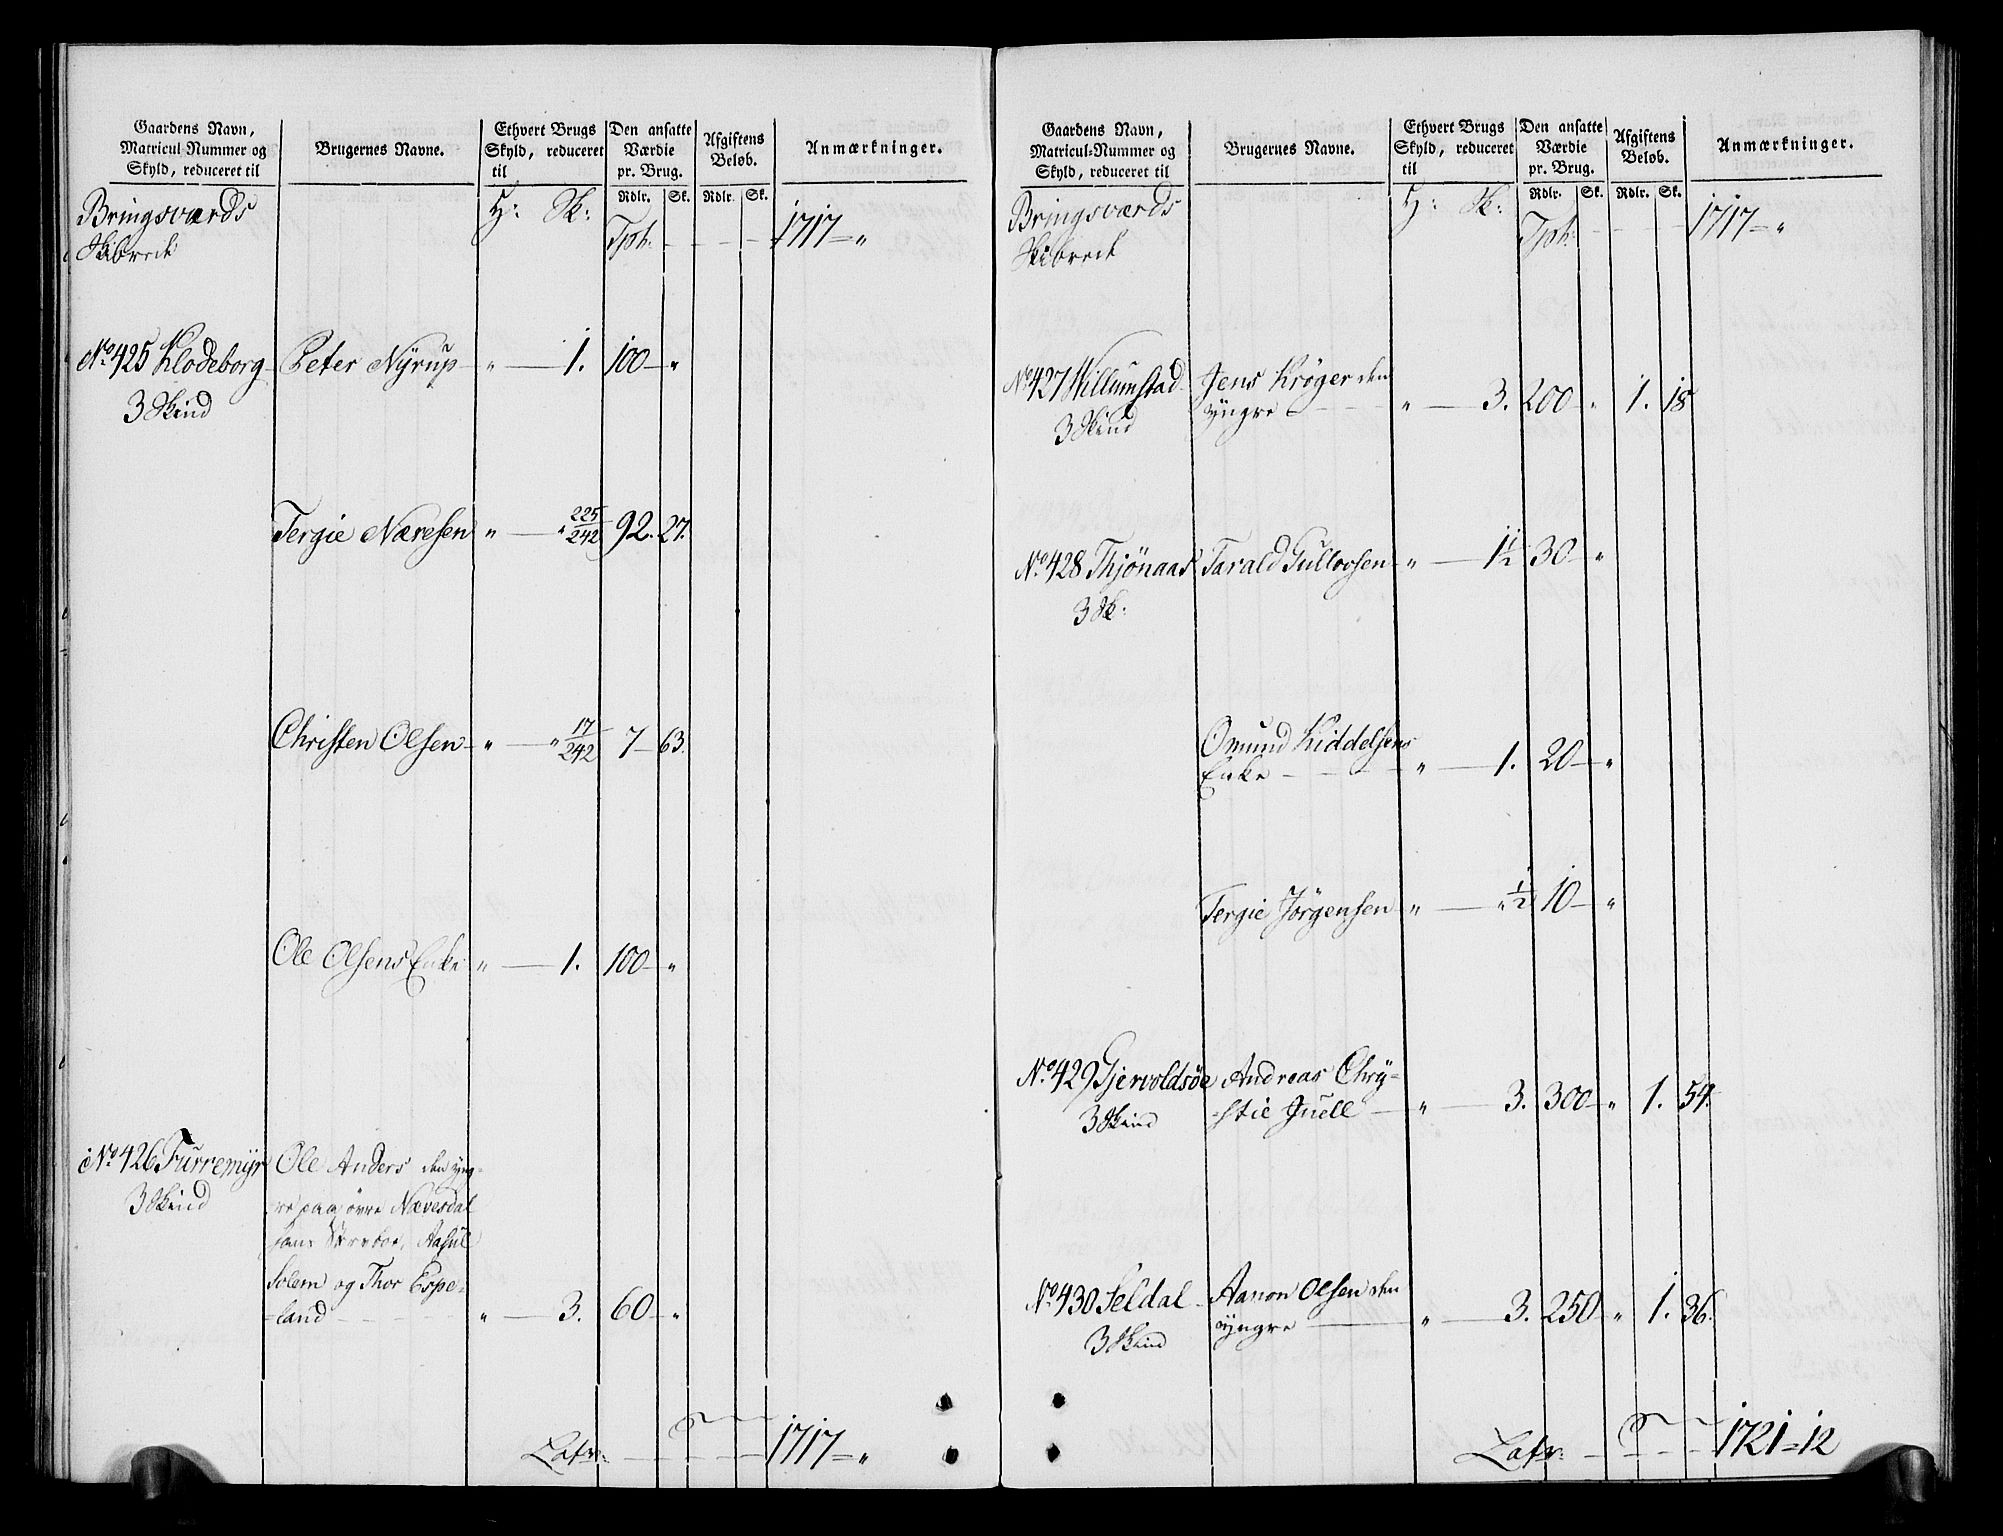 Gaardens Navn,
Matricul-Nummer og
Skyld, reduceret til
Brugernes Navne.
Ethvert Brugs
Skyld, reduceret
til
Den ansatte
Værdie
pr. Brug.
Afgiftens
Beløb.
Anmærkninger.
Rdlr. Sk. Rdlr. Sk.
Bringsværds
Skibrede
H: Sk:
Tpt. 1717 = "
No. 425 Klodeborg Peter Nÿrup " 1. 100 "
3 Skind
Tergie Næresen " " 225/242 92. 27.
Christen Olsen " " 17/242 7 63.
Ole Olsens Enke " 1. 100 "
No. 426 Furremyr Ole Anders den yng=
3 Skind
re paa øvre Nævesdal
Solem og Thor Espe=
=land " 3. 60 "
Latr: 1717 = "
Gaardens Navn,
Matricul-Nummer og
Skyld, reduceret til
Brugernes Navne.
Ethvert Brugs
Skyld, reduceret
til
Den ansatte
Værdie
pr. Brug.
Afgiftens
Beløb.
Anmærkninger.
Rdlr. Sk. Rdlr. Sk.
Bringsværds
Skibrede
H: Sk:
Tpt. 1717 = "
No. 427 Willumstad Jens Krøger den
yngre " 3. 200 " 1. 18
3 Skind
No. 428 Thjønaas Tarald Gullovsen " 1 1/2 30 "
3 Sk:
Omund Kiddelsens
Enke " 1. 20 "
Tergie Jørgensen " " 1/2 10 "
No. 429 Gjervoldsøe Andreas Chrÿ=
3 Skind =stie Juell " 3. 300 " 1. 54.
No. 430 Seldal Aanon Olsen den
yngre " 3. 250 " 1. 36.
3 Skind
Latr: 1721 = 12